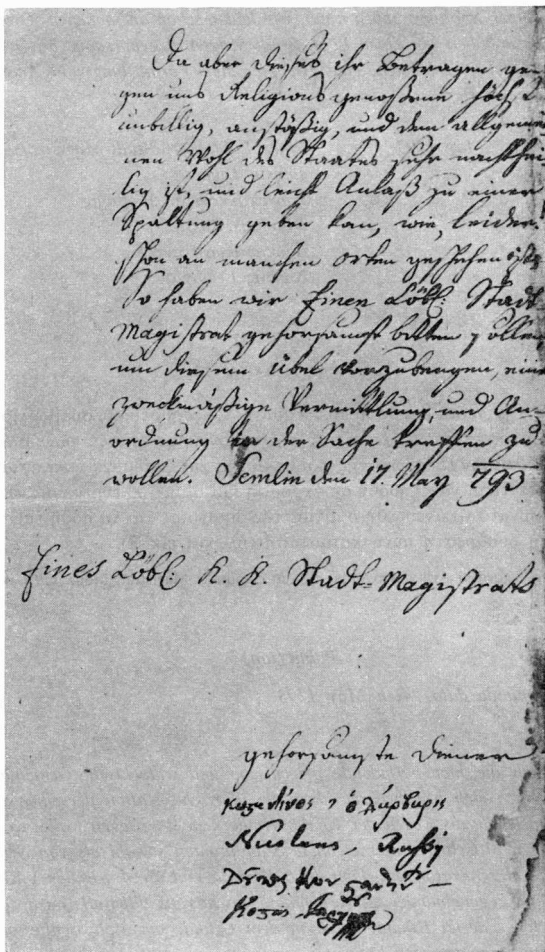 Da aber dieses ihr Betragen ge-
gen uns Religionsgenoßene höchst
unbillig, anstößig, und dem allgemei-
nen Wohl des Staates sehr nachthei-
lig ist, und leicht Anlaß zu einer
Spaltung geben kan, wie, leider!
schon an manchen Orten geschehen ist;
So haben wir Einen Löbl: Stadt
Magistrat gehorsamst bitten sollen,
um diesem übel vorzubeugen, eine
zweckmäßige Vermittlung, und An-
ordnung in der Sache treffen zu
wollen. Semlin den 17. May 793
Eines Löbl: K. K. Stadt-Magistrats
gehorsamste Diener
Nicolaus